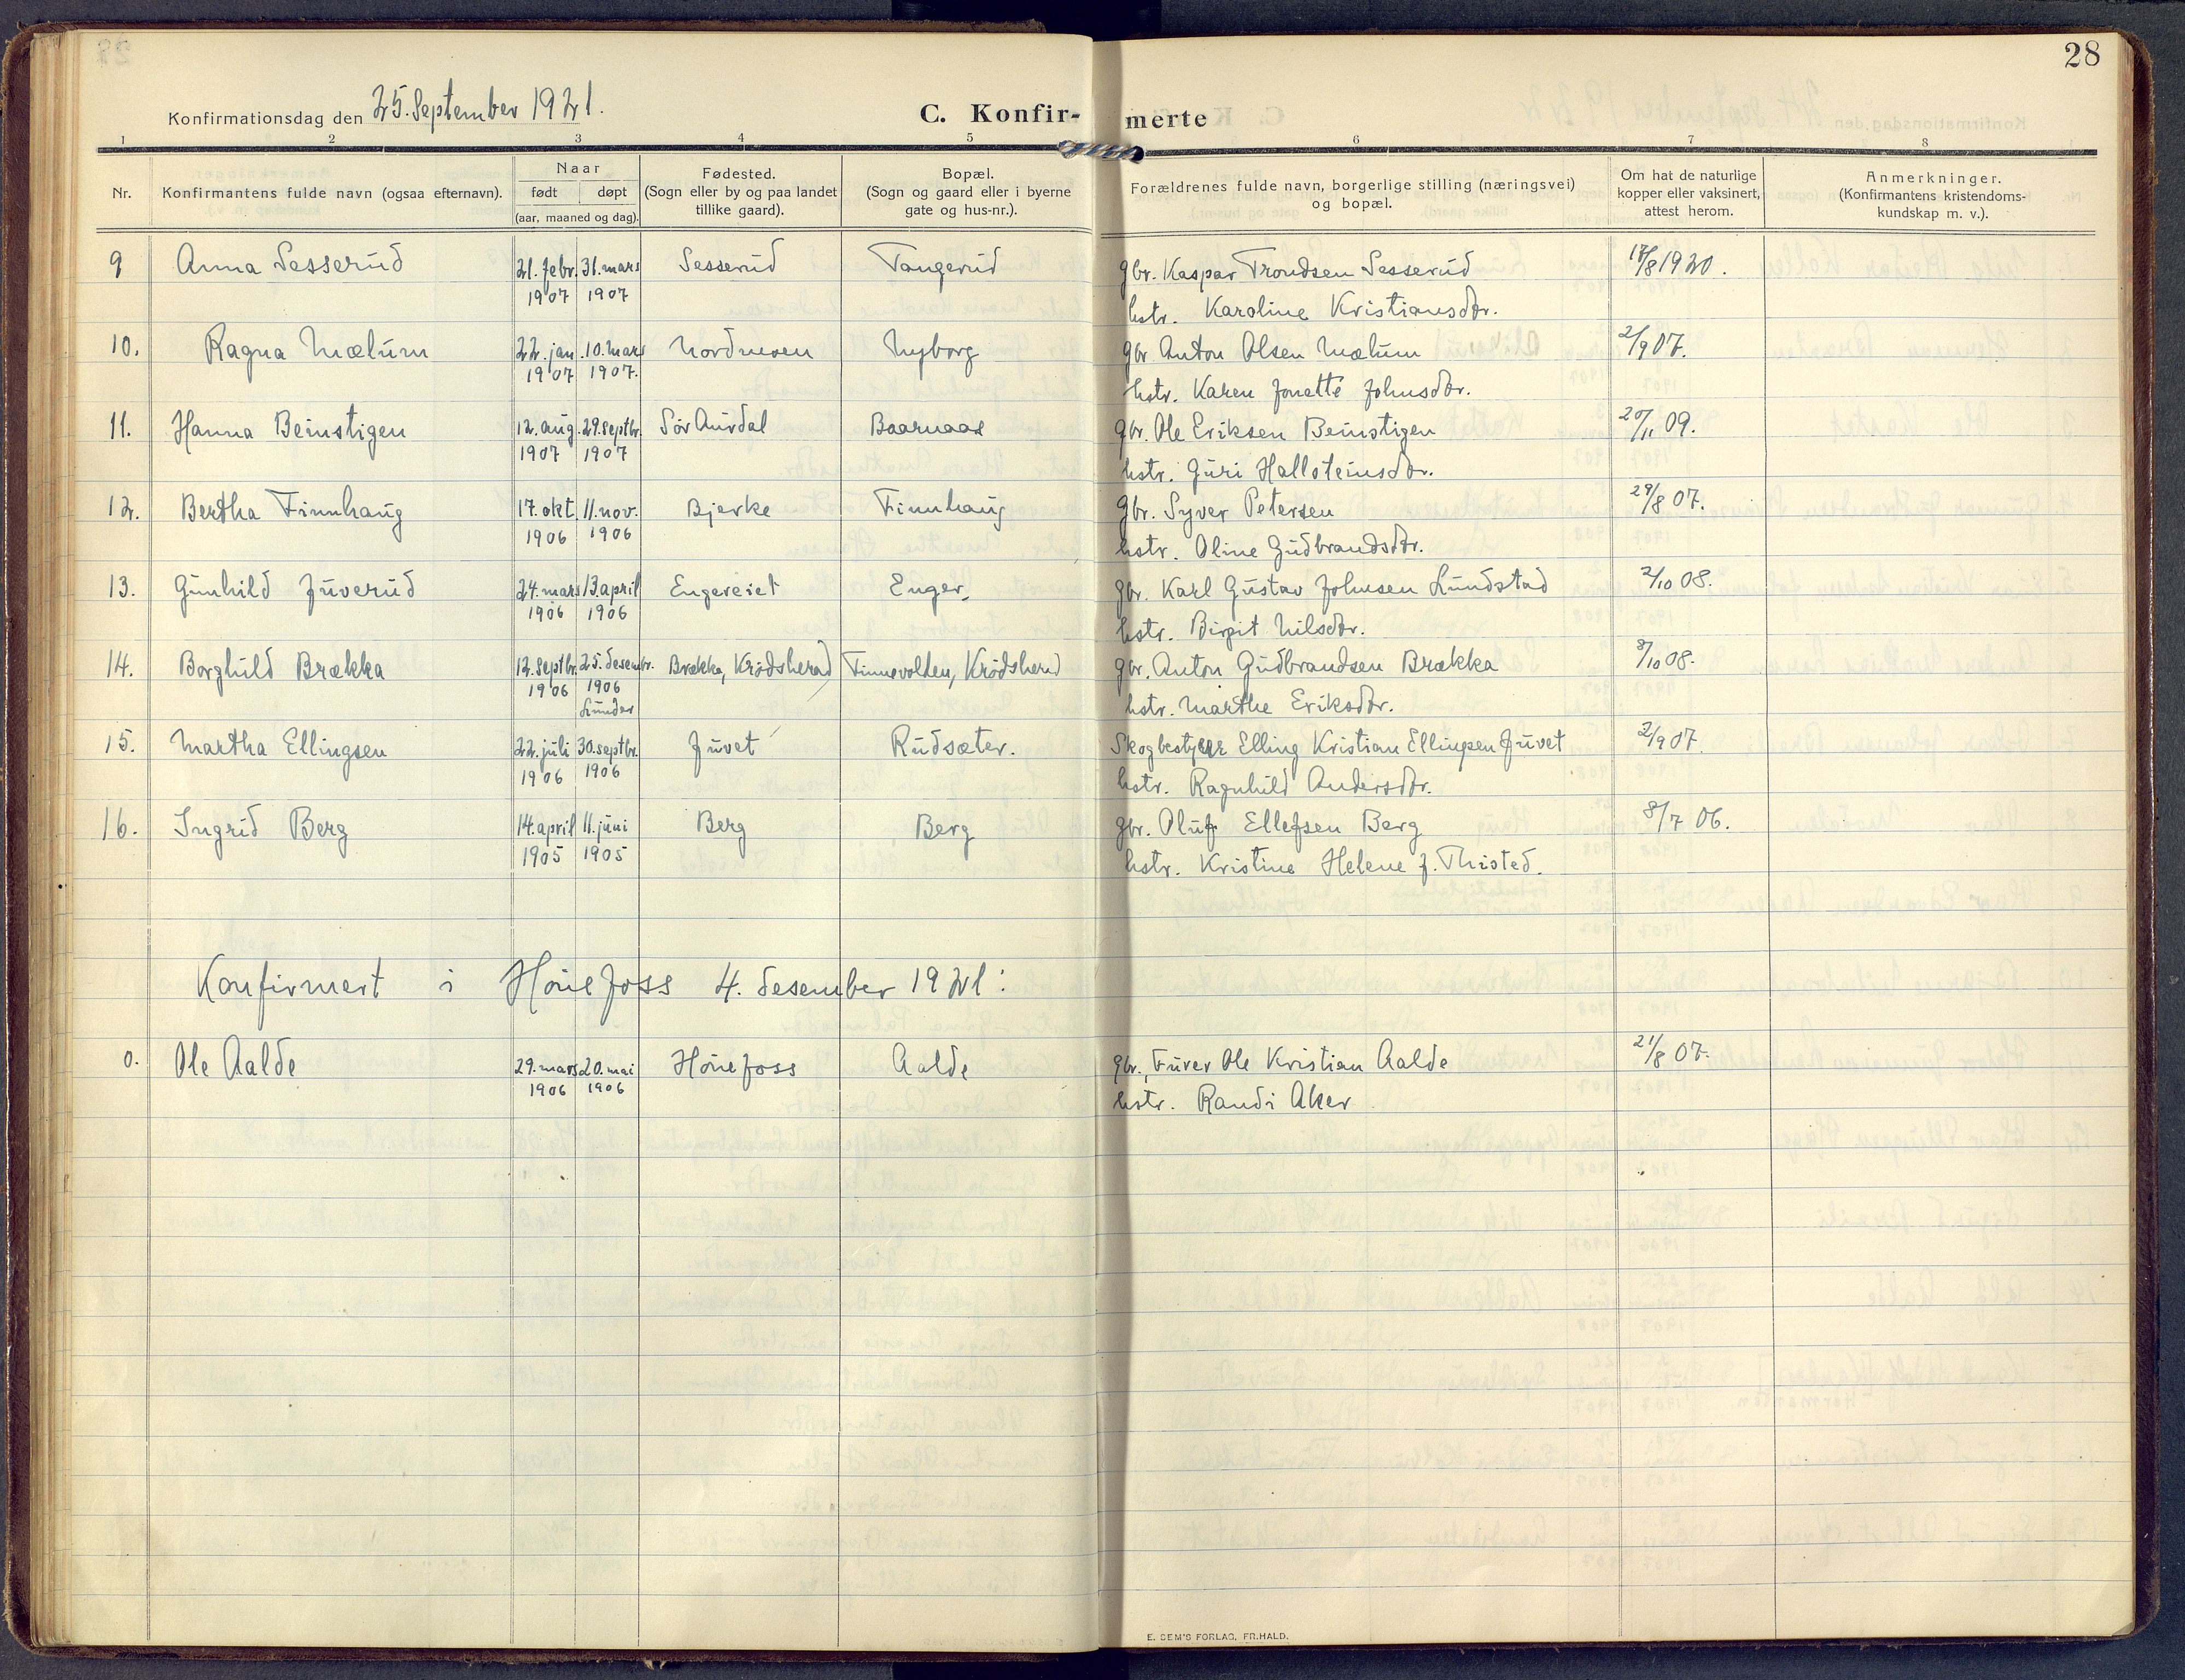 28
Konfirmationsdag den 25. September 1921.
C. Konfir-merte
1 2 3 4 5 6 7 8
Nr.
Konfirmantens fulde navn (ogsaa efternavn).
Naar
født døpt
(aar, maaned og dag).
Fødested.
(Sogn eller by og paa landet
tillike gaard).
Bopæl.
(Sogn og gaard eller i byerne
gate og hus-nr.).
Forældrenes fulde navn, borgerlige stilling (næringsvei)
og bopæl.
Om hat de naturlige
kopper eller vaksinert,
attest herom.
Anmerkninger.
(Konfirmantens kristendoms-
kundskap m. v.).
9 Anna Sesserud 21. febr. 31. mars Sesserud Tangerud gbr. Kaspar Trondsen Sesserud 17/8 1920.
1907 1907 hstr. Karoline Kristiansdr.
10. Ragna Mælum 22. jan. 10. mars Nordmoen Nyborg gbr. Anton Olsen Mælum 2/9 07.
1907 1907. hstr. Karen Jonette Johnsdr.
11. Hanna Beinstigen 12. aug. 29. septbr. Sør Aurdal Baarnaas gbr. Ole Eriksen Beinstigen 20/11 09.
1907 1907 hstr. Guri Hallsteinsdr.
12. Bertha Finnhaug 17. okt. 11. nov. Bjerke Finnhaug gbr. Syver Petersen 29/8 07.
1906 1906 hstr. Oline Gudbrandsdr.
13. Gunhild Juverud 24. mars 13. april Engereiet Enger. gbr. Karl Gustav Johnsen Lundstad 2/10 08.
1906 1906 hstr. Birgit Nilsdr.
14. Borghild Brækka 12. septbr. 25. desembr. Brækka, Krødsherad Finnevolden, Krødsherad gbr. Anton Gudbrandsen Brækka 8/10 08.
1906 1906 hstr. Marthe Eriksdr.
Lunder
15. Martha Ellingsen 22. juli 30. septbr. Juvet Rudsæter. Skogbestyrer Elling Kristian Ellingsen Juvet 2/9 07.
1906 1906 hstr. Ragnhild Andersdr.
16. Ingrid Berg 14. april 11. juni Berg Berg gbr. Oluf Ellefsen Berg 8/7 06.
1905 1905 hstr. Kristine Helene f. Thisted.
Konfirmert i Hønefoss 4. desember 1921:
0. Ole Aalde 29. mars 20. mai Hønefoss Aalde gbr., Furer Ole Kristian Aalde 21/8 07.
1906 1906 hstr. Randi Aker
E. SEM'S FORLAG, FR.HALD.